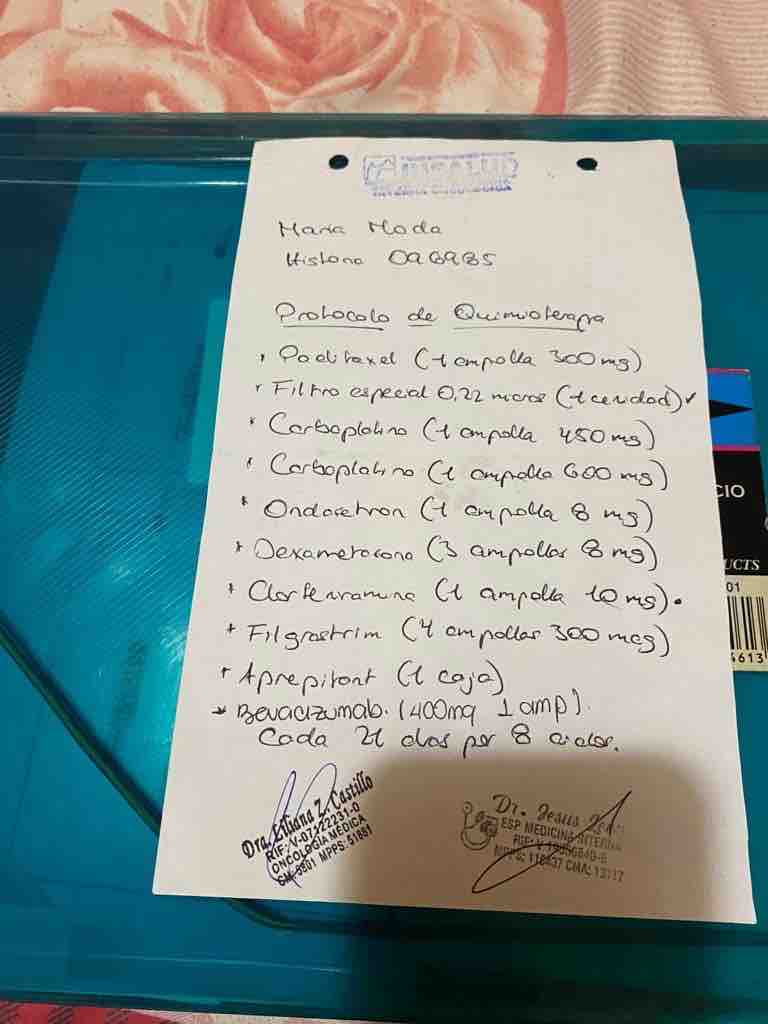 INSALUD
Maria Moda
Historia 096985
Protocolo de Quimioterapia
Paclitaxel (1 ampolla 300 mg)
* Filtro especial 0,22 micras (1 unidad) ✓
* Carboplatino (1 ampolla 450 mg)
* Carboplatino (1 ampolla 600 mg)
* Ondasetron (1 ampolla 8 mg)
* Dexametasona (3 ampollas 8 mg)
* Clorfenramina (1 ampolla 10 mg).
+ Filgrastrim (4 ampollas 300 mcg)
+ Aprepitant (1 caja)
* Bevacizumab. (400mg 1 amp).
Cada 21 dias por 8 ciclos.
Dra. Liliana Z. Castillo
RIF: V-07122231-0
ONCOLOGÍA MÉDICA
CM: 9801 MPPS: 51881
Dr. Jesus
ESP. MEDICINA INTERNA
RIF: V
MPPS: 118437 CMA: 13117
CIO
UCTS
01
4613